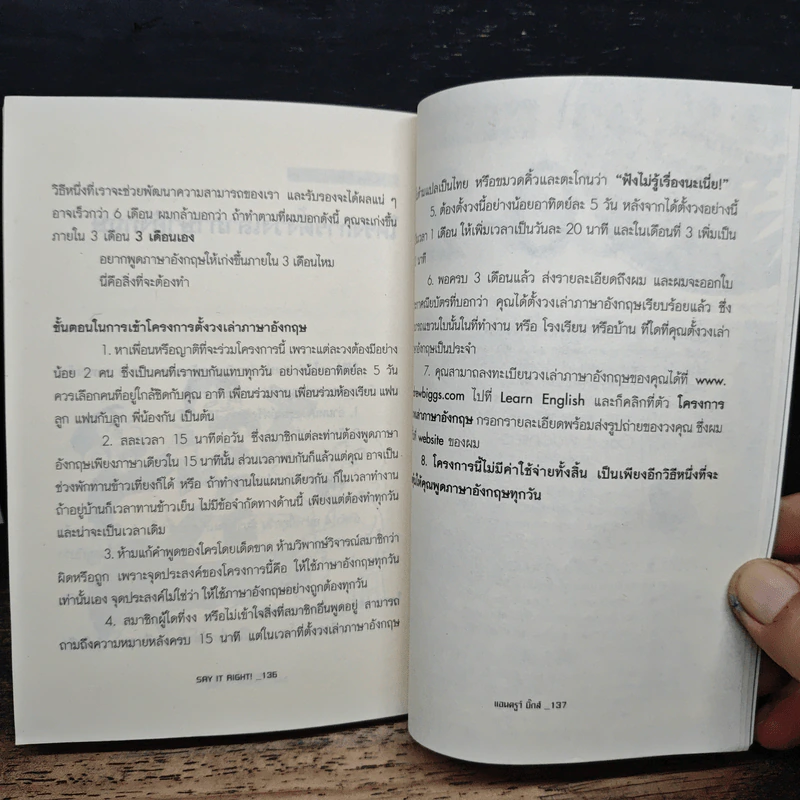 วิธีหนึ่งที่เราจะช่วยพัฒนาความสามารถของเรา และรับรองจะได้ผลแน่ ๆ
อาจเร็วกว่า 6 เดือน ผมกล้าบอกว่า ถ้าทำตามที่ผมบอกดังนี้ คุณจะเก่งขึ้น
ภายใน 3 เดือน 3 เดือนเอง
อยากพูดภาษาอังกฤษให้เก่งขึ้นภายใน 3 เดือนไหม
นี่คือสิ่งที่จะต้องทำ
ขั้นตอนในการเข้าโครงการตั้งวงเล่าภาษาอังกฤษ
1. หาเพื่อนหรือญาติที่จะร่วมโครงการนี้ เพราะแต่ละวงต้องมีอย่าง
น้อย 2 คน ซึ่งเป็นคนที่เราพบกันแทบทุกวัน อย่างน้อยอาทิตย์ละ 5 วัน
ควรเลือกคนที่อยู่ใกล้ชิดกับคุณ อาทิ เพื่อนร่วมงาน เพื่อนร่วมห้องเรียน แฟน
ลูก แฟนกับลูก พี่น้องกัน เป็นต้น
2. สละเวลา 15 นาทีต่อวัน ซึ่งสมาชิกแต่ละท่านต้องพูดภาษา
อังกฤษเพียงภาษาเดียวใน 15 นาทีนั้น ส่วนเวลาพบกันก็แล้วแต่คุณ อาจเป็น
ช่วงพักทานข้าวเที่ยงก็ได้ หรือ ถ้าทำงานในแผนกเดียวกัน ก็ในเวลาทำงาน
ถ้าอยู่บ้านก็เวลาทานข้าวเย็น ไม่มีข้อจำกัดทางด้านนี้ เพียงแต่ต้องทำทุกวัน
และน่าจะเป็นเวลาเดิม
3. ห้ามแก้คำพูดของใครโดยเด็ดขาด ห้ามวิพากษ์วิจารณ์สมาชิกว่า
ผิดหรือถูก เพราะจุดประสงค์ของโครงการนี้คือ ให้ใช้ภาษาอังกฤษทุกวัน
เท่านั้นเอง จุดประสงค์ไม่ใช่ว่า ให้ใช้ภาษาอังกฤษอย่างถูกต้องทุกวัน
4. สมาชิกผู้ใดที่งง หรือไม่เข้าใจสิ่งที่สมาชิกอื่นพูดอยู่ สามารถ
ถามถึงความหมายหลังครบ 15 นาที แต่ในเวลาที่ตั้งวงเล่าภาษาอังกฤษ
SAY IT RIGHT! _136
ห้ามแปลเป็นไทย หรือขมวดคิ้วและตะโกนว่า "ฟังไม่รู้เรื่องนะเนี่ย!"
5. ต้องตั้งวงนี้อย่างน้อยอาทิตย์ละ 5 วัน หลังจากได้ตั้งวงอย่างนี้
เวลา 1 เดือน ให้เพิ่มเวลาเป็นวันละ 20 นาที และในเดือนที่ 3 เพิ่มเป็น
นาที
6. พอครบ 3 เดือนแล้ว ส่งรายละเอียดถึงผม และผมจะออกใบ
ประกาศณียบัตรที่บอกว่า คุณได้ตั้งวงเล่าภาษาอังกฤษเรียบร้อยแล้ว ซึ่ง
สามารถแขวนใบนั้นในที่ทำงาน หรือ โรงเรียน หรือบ้าน ที่ใดที่คุณตั้งวงเล่า
ภาษาอังกฤษเป็นประจำ
7. คุณสามาถลงทะเบียนวงเล่าภาษาอังกฤษของคุณได้ที่ www.
drewbiggs.com ไปที่ Learn English และก็คลิกที่ตัว โครงการ
เล่าภาษาอังกฤษ กรอกรายละเอียดพร้อมส่งรูปถ่ายของวงคุณ ซึ่งผม
website ของผม
8. โครงการนี้ไม่มีค่าใช้จ่ายทั้งสิ้น เป็นเพียงอีกวิธีหนึ่งที่จะ
ให้คุณพูดภาษาอังกฤษทุกวัน
แอนดรูว์ บิ๊กส์ _137